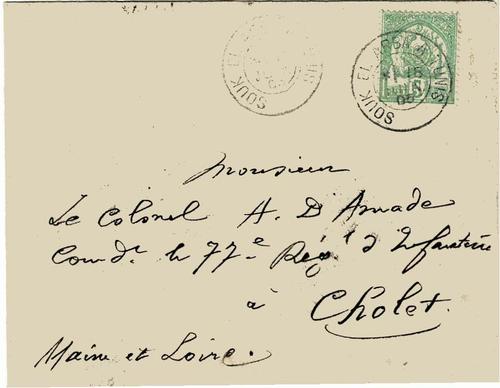 SOUK EL ARBA TUNIS
SOUK EL ARBA TUNIS
15
05
Monsieur
Le Colonel A. D'Amade
Comdr. le 77e Rég t d'Infanterie
à
Cholet.
Maine et Loire.